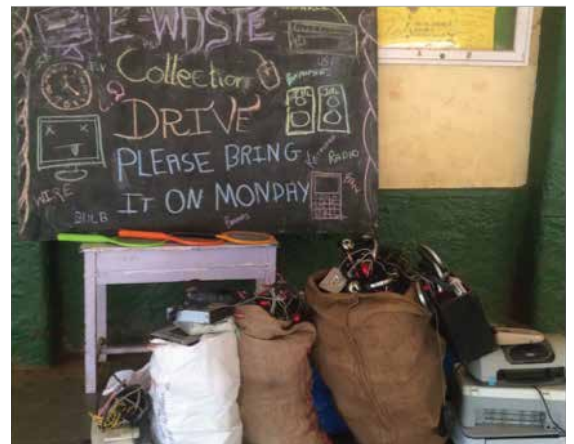 E-WASTE
Collection
DRIVE
PLEASE BRING
IT ON MONDAY
RADIO
WIRE
BULB